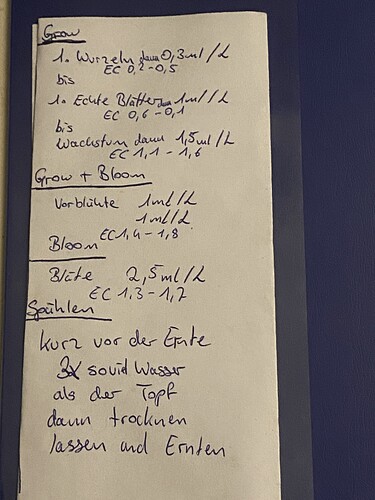 Grow
1. Wurzeln dann 0,3ml/L
EC 0,2-0,5
bis
1. Echte Blätter dann 1ml/L
EC 0,6-0,1
bis
Wachstum dann 1,5ml/L
EC 1,1-1,6
Grow + Bloom
Vorblühte 1ml/L
1ml/L
EC 1,4-1,8
Bloom
Blüte 2,5ml/L
EC 1,3-1,7
Spühlen
kurz vor der Ernte
3x soviel Wasser
als der Topf
dann trocknen
lassen und Ernten